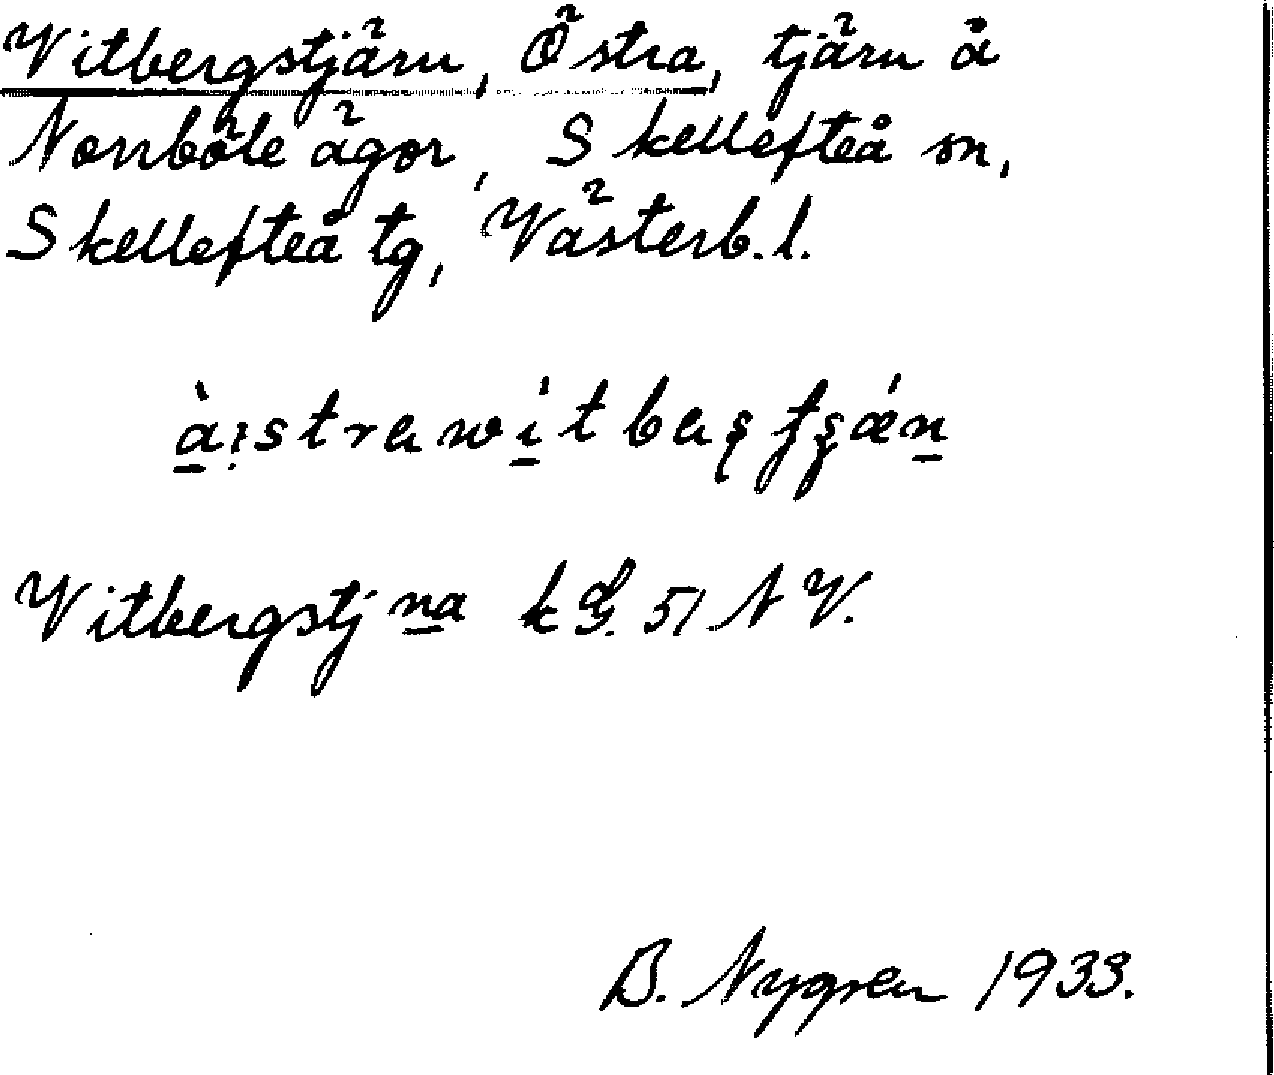 Vitbergstjärn, Östra, tjärn å
Norrböle ägor, Skellefteå sn,
Skellefteå tg, Västerb. l.
Vitbergstjna k G. 51 NV.
B. Nygren 1933.